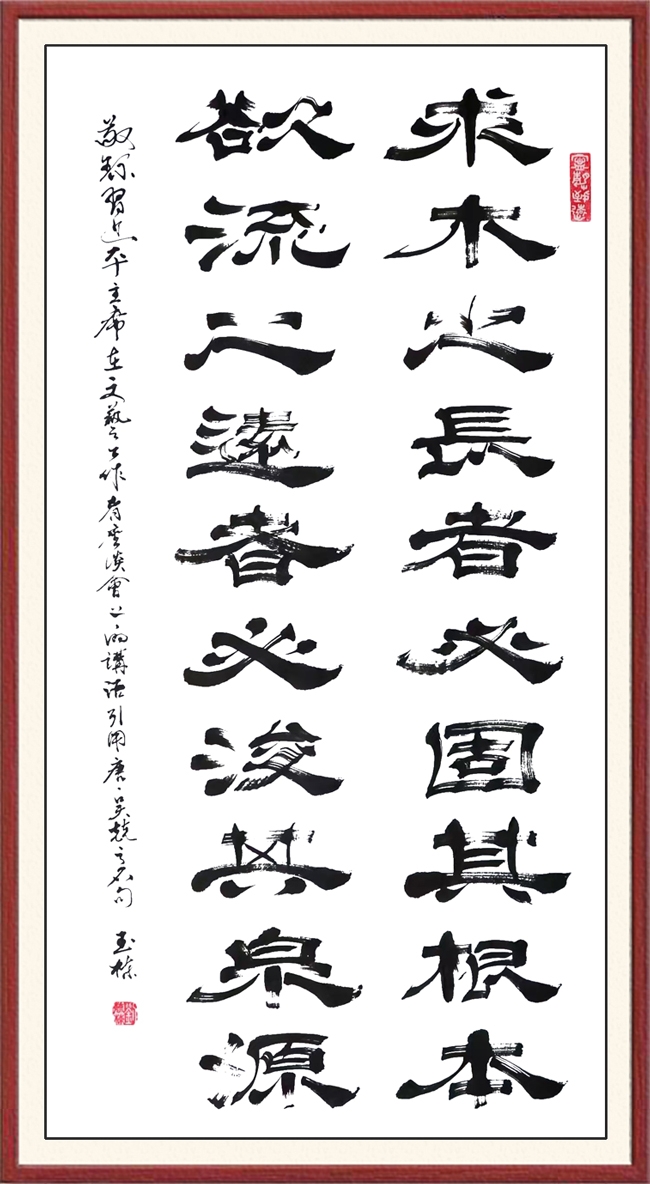 求木之長者必固其根本
欲流之遠者必浚其泉源
敬錄習近平主席在文藝工作者座谈會上的講话引用唐·吴兢之名句